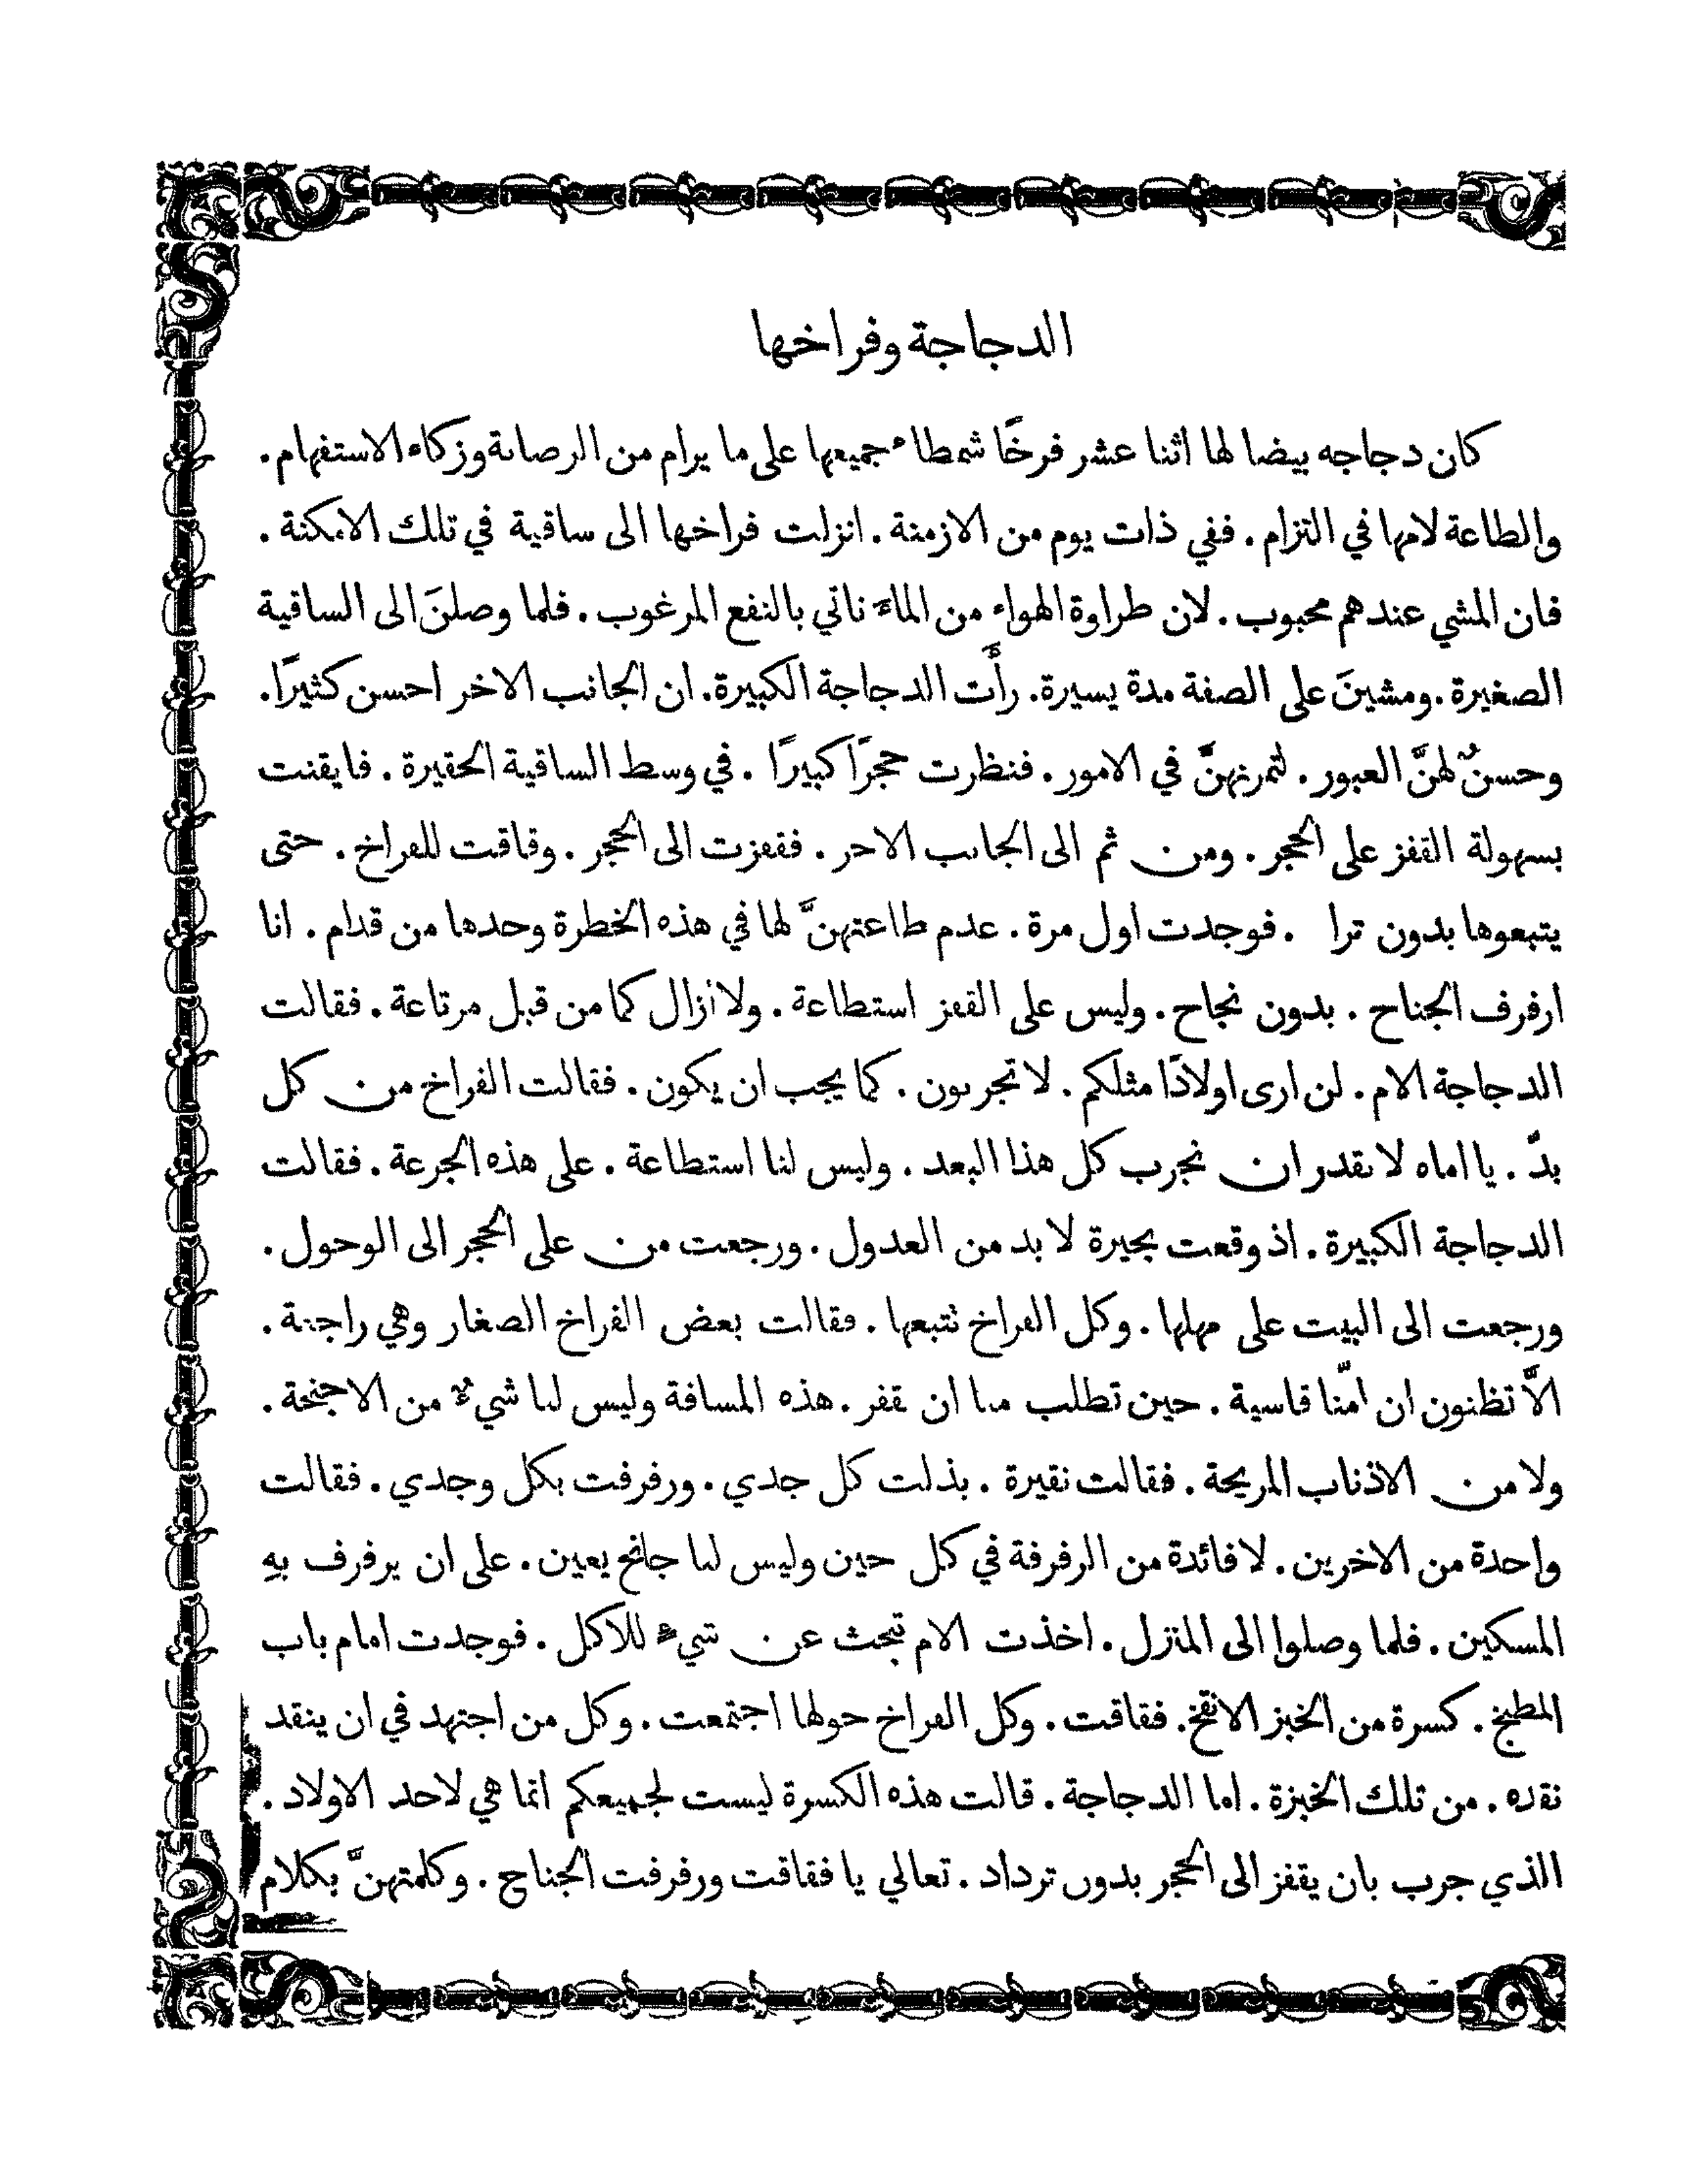 الدجاجة وفراخها
كان دجاجه بيضا لها اثنا عشر فرخًا شمطاء جميعها على ما يرام من الرصانة وزكاء الاستفهام.
والطاعة لامها في التزام. ففي ذات يوم من الازمنة. انزلت فراخها الى ساقية في تلك الامكنة.
فان المشي عندهم محبوب. لان طراوة الهواء من الماء تاتي بالنفع المرغوب. فلما وصلنَ الى الساقية
الصغيرة. ومشينَ على الصفة مدة يسيرة. رأت الدجاجة الكبيرة. ان الجانب الاخر احسن كثيرًا.
وحسنٌ لهنَّ العبور. لتمرنهنَّ في الامور. فنظرت حجرًا كبيرًا. في وسط الساقية الحقيرة. فايقنت
بسهولة القفز على الحجر. ومن ثم الى الجانب الاخر. فقفزت الى الحجر. وقاقت للفراخ. حتى
يتبعوها بدون ترا . فوجدت اول مرة. عدم طاعتهنَّ لها في هذه الخطرة وحدها من قدام. انا
ارفرف الجناح. بدون نجاح. وليس على القفز استطاعة. ولا ازال كما من قبل مرتاعة. فقالت
الدجاجة الام. لن ارى اولادًا مثلكم. لا تجربون. كما يجب ان يكون. فقالت الفراخ من كل
بدّ. يا اماه لا نقدر ان نجرب كل هذا البعد. وليس لنا استطاعة. على هذه الجرعة. فقالت
الدجاجة الكبيرة. اذ وقعت بحيرة لا بد من العدول. ورجعت من على الحجر الى الوحول.
ورجعت الى البيت على مهلها. وكل الفراخ تتبعها. فقالت بعض الفراخ الصغار وهي راجنة.
الاَّ تظنون ان امّنا قاسية. حين تطلب منا ان نقفز. هذه المسافة وليس لنا شيءٌ من الاجنحة.
ولا من الاذناب المريحة. فقالت نقيرة. بذلت كل جدي. ورفرفت بكل وجدي. فقالت
واحدة من الاخرين. لا فائدة من الرفرفة في كل حين وليس لنا جانح يعين. على ان يرفرف بهِ
المسكين. فلما وصلوا الى المنزل. اخذت الام تبحث عن شيءٍ للاكل. فوجدت امام باب
المطبخ. كسرة من الخبز الانقخ. فقاقت. وكل الفراخ حولها اجتمعت. وكل من اجتهد في ان ينقد
نقده. من تلك الخبزة. اما الدجاجة. قالت هذه الكسرة ليست لجميعكم انما هي لاحد الاولاد.
الذي جرب بان يقفز الى الحجر بدون ترداد. تعالي يا فقاقت ورفرفت الجناح. وكلمتهنَّ بكلام